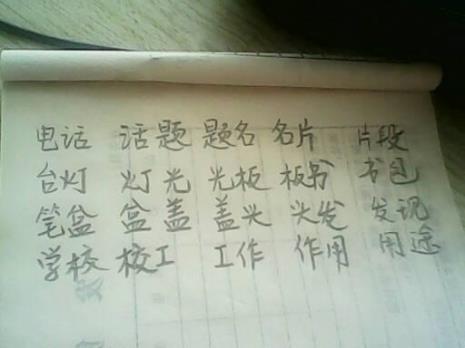 电话 话题 题名 名片 片段
台灯 灯光 光板 板书 书包
笔盆 盆盖 盖头 头发 发现
学校 校工 工作 作用 用途